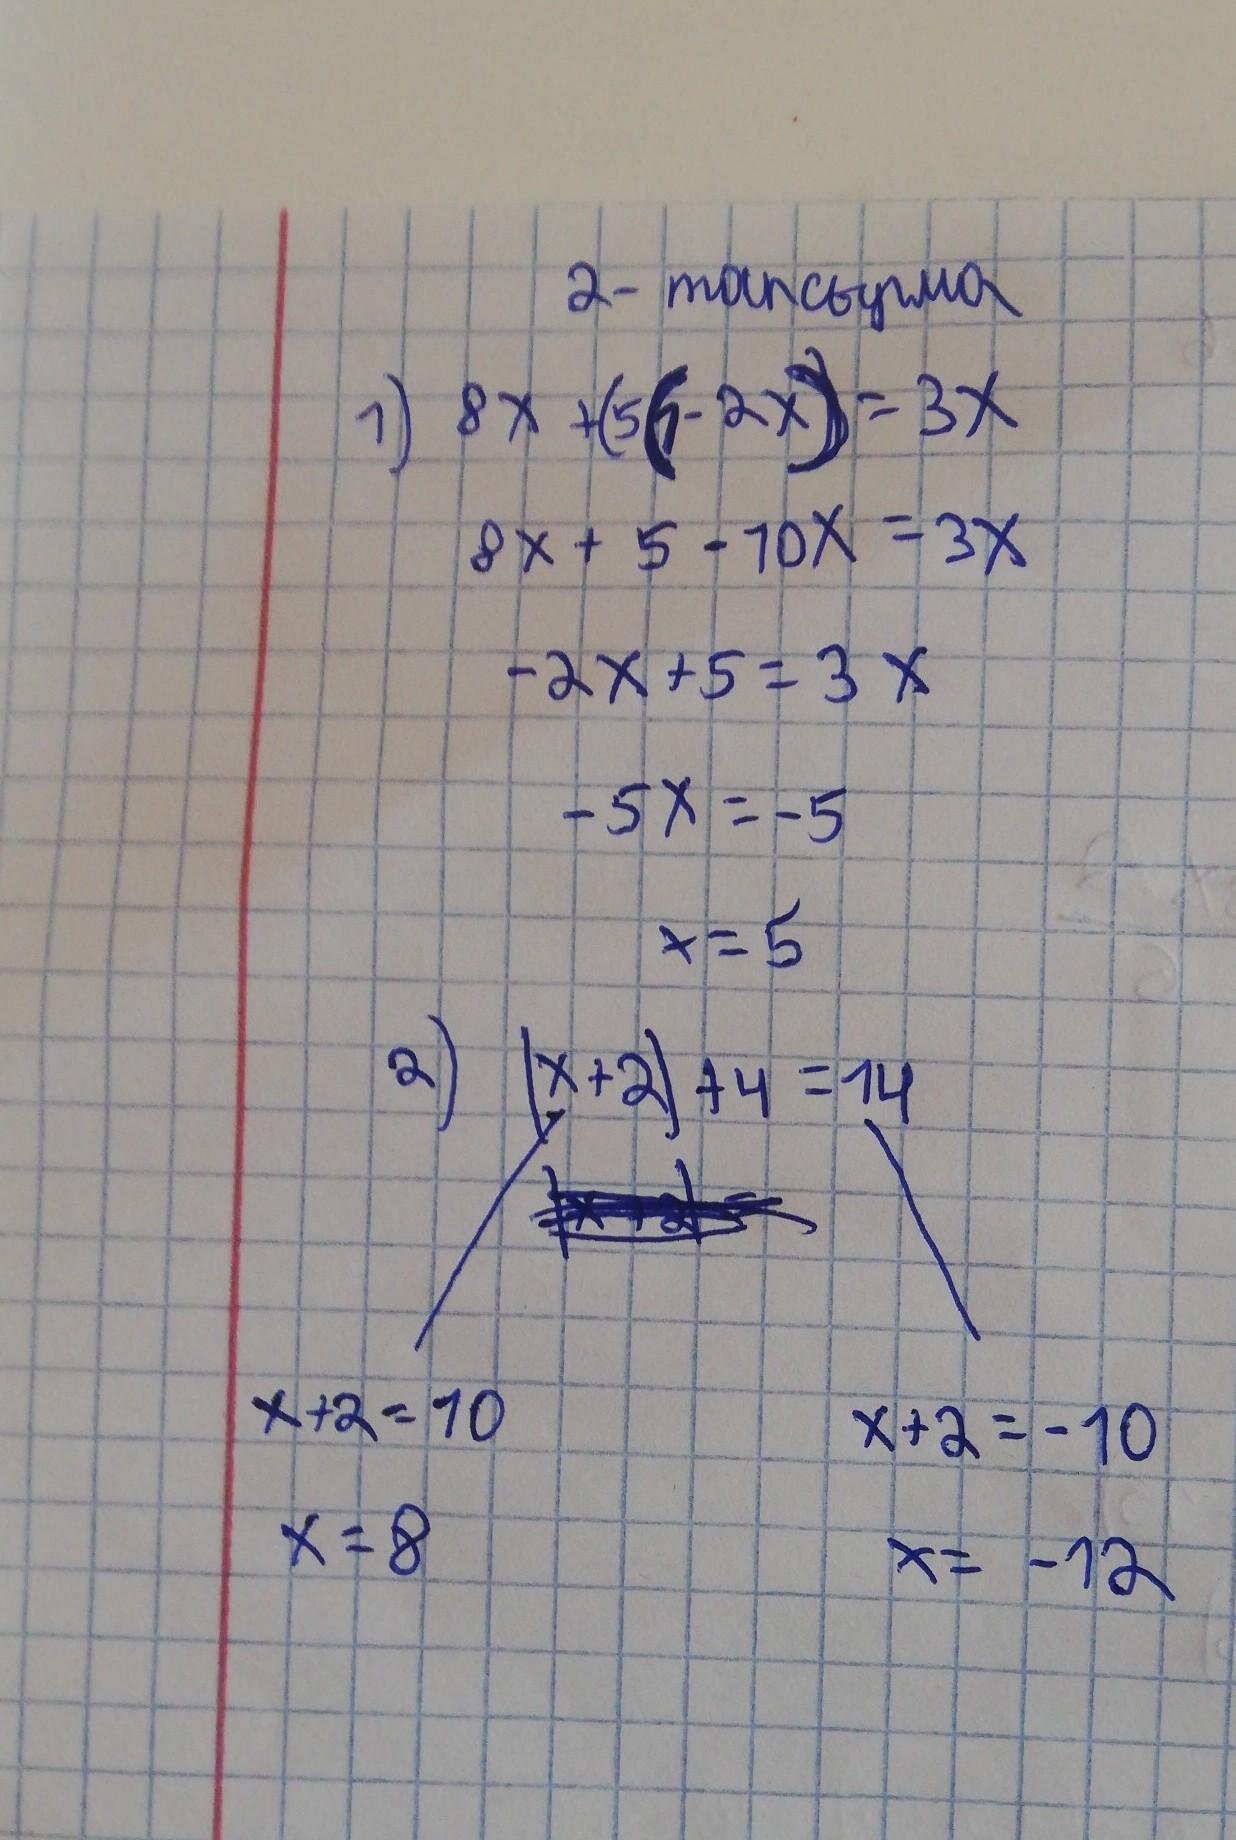 2- тапсырма
1) 8x + (5(1-2x)) = 3x
8x + 5 - 10x = 3x
-2x + 5 = 3x
-5x = -5
x = 5
2) |x+2| + 4 = 14
x+2 = 10 x+2 = -10
x = 8 x = -12